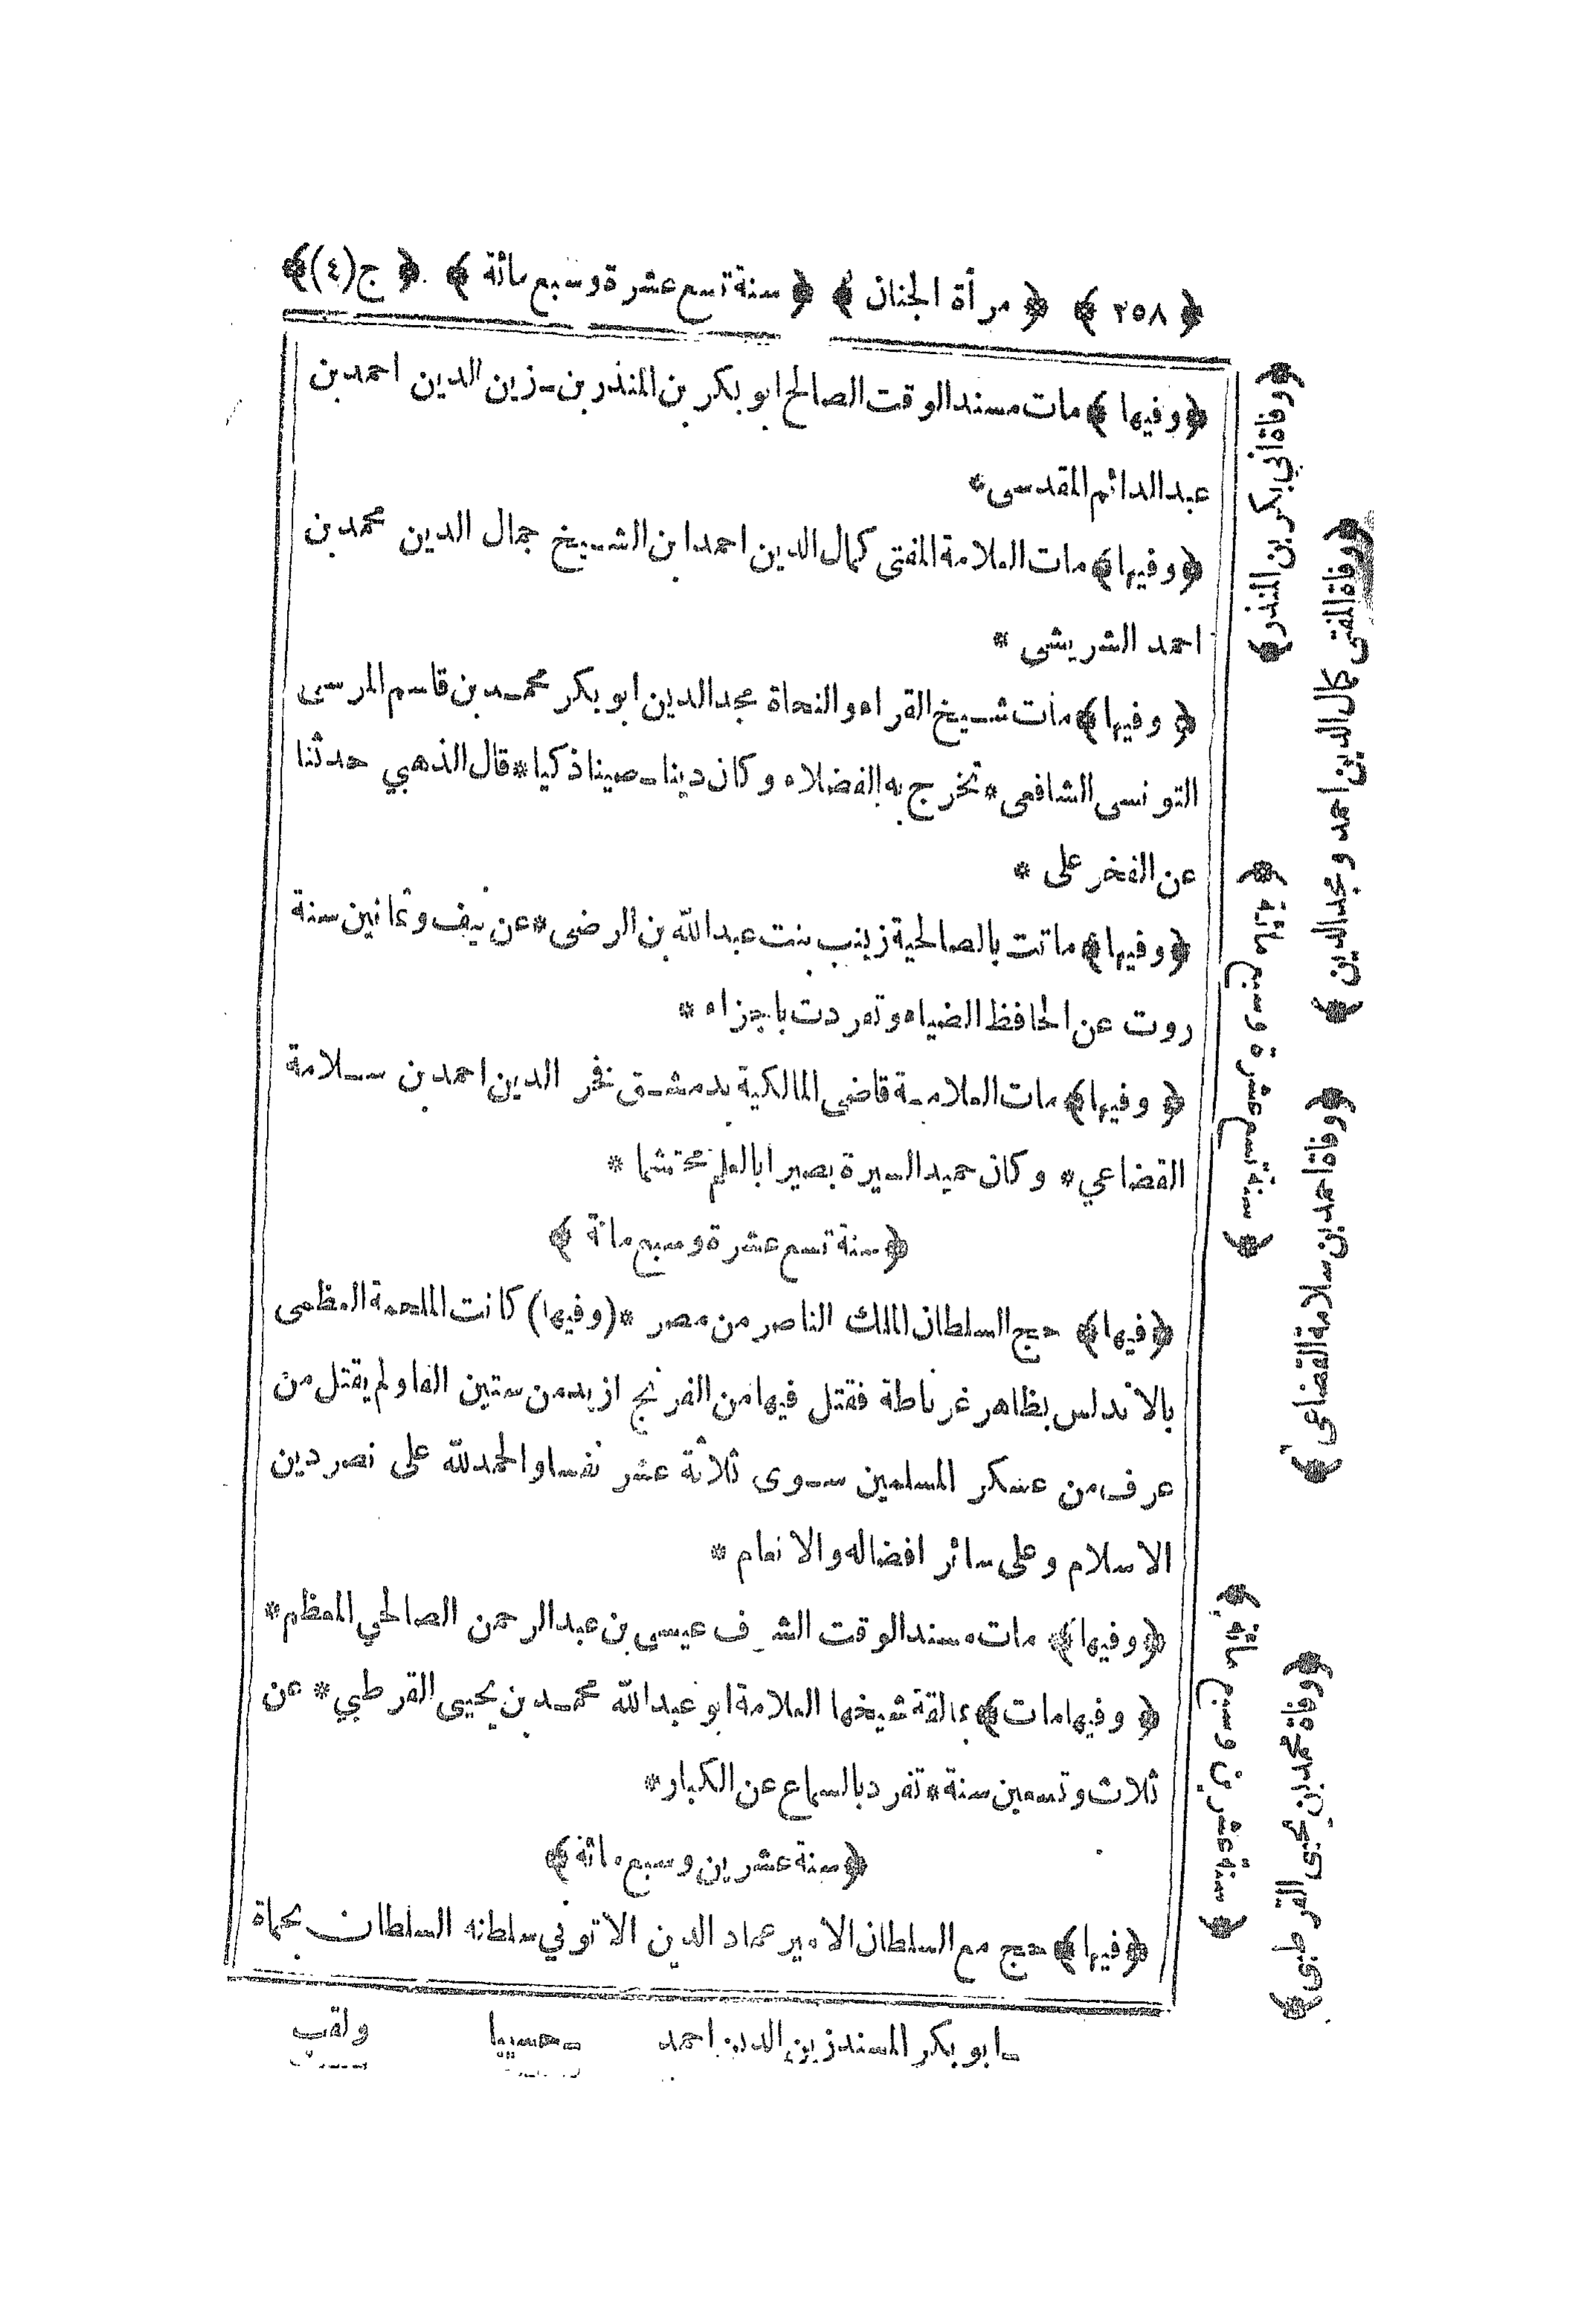 ﴿ ٢٥٨ ﴾ ﴿ مرأة الجنان ﴾ ﴿ سنة تسع عشرة وسبع مائة ﴾ ﴿ ج(٤) ﴾
﴿ وفيها ﴾ مات مسند الوقت الصالح ابو بكر بن المنذر بن زين الدين احمد بن
عبد الدائم المقدسى *
﴿ وفيها ﴾ مات العلامة المفتى كمال الدين احمد ابن الشيخ جمال الدين محمد بن
احمد الشريشى *
﴿ وفيها ﴾ مات شيخ القراء والنحاة مجد الدين ابو بكر محمد بن قاسم المرسى
التونسى الشافعى * تخرج به الفضلاء وكان دينا صينا ذكيا * قال الذهبي حدثنا
عن الفخر على *
﴿ وفيها ﴾ ماتت بالصالحية زينب بنت عبد الله بن الرضى * عن نيف وثمانين سنة
روت عن الحافظ الضياء وتفردت باجزاء *
﴿ وفيها ﴾ مات العلامة قاضى المالكية بدمشق فخر الدين احمد بن سلامة
القضاعي * وكان حميد السيرة بصيرا بالعلم محتشما *
﴿ سنة تسع عشرة وسبع مائة ﴾
﴿ فيها ﴾ حج السلطان الملك الناصر من مصر * (وفيها) كانت الملحمة العظمى
بالاندلس بظاهر غرناطة فقتل فيها من الفرنج ازيد من ستين الفا ولم يقتل من
عرف من عسكر المسلمين سوى ثلاثة عشر نفسا والحمد لله على نصر دين
الاسلام وعلى سائر افضاله والانعام *
﴿ وفيها ﴾ مات مسند الوقت الشرف عيسى بن عبد الرحمن الصالحي المعظم *
﴿ وفيها مات ﴾ بمالقة شيخها العلامة ابو عبد الله محمد بن يحيى القرطبي * عن
ثلاث وتسعين سنة * تفرد بالسماع عن الكبار *
﴿ سنة عشرين وسبع مائة ﴾
﴿ فيها ﴾ حج مع السلطان الامير عماد الدين الاتوني سلطنه السلطان بحماة
ابو بكر المسند زين الدين احمد حسيبا ولقب
﴿ وفاة ابي بكر بن المنذر ﴾
﴿ وفاة المفتى كمال الدين احمد ومجد الدين ﴾
﴿ سنة تسع عشرة وسبع مائة ﴾
﴿ وفاة احمد بن سلامة القضاعى ﴾
﴿ سنة عشرين وسبع مائة ﴾
﴿ وفاة محمد بن يحيى القرطبى ﴾